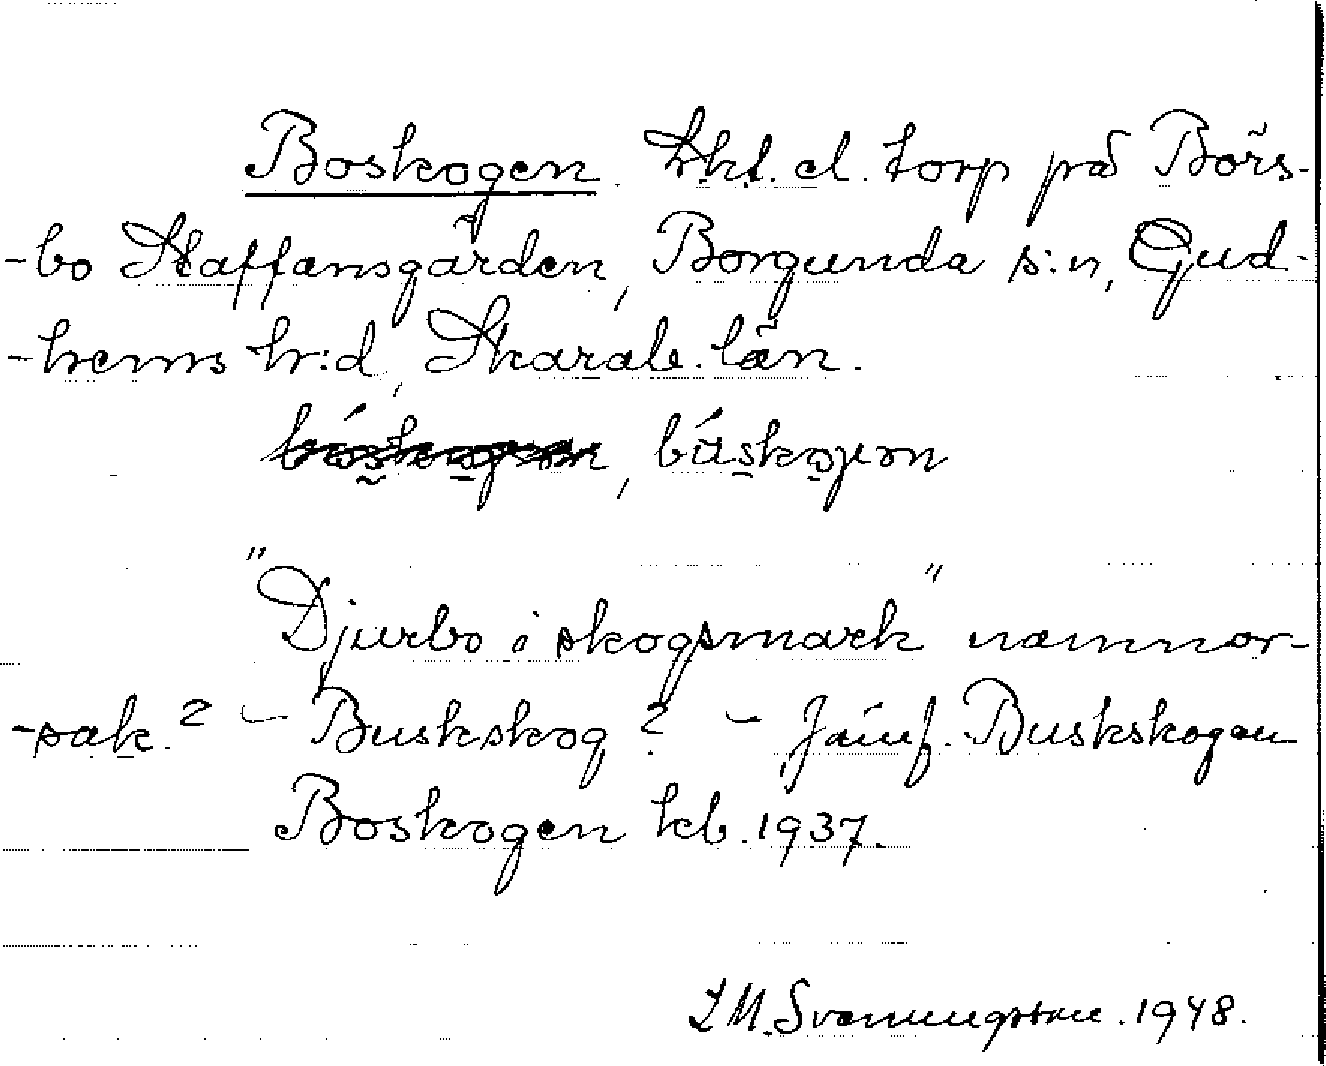 Boskogen. Lht. el. torp på Börs-
-bo Staffansgården, Borgunda s:n, Gud-
-hems h:d, Skarab. län.
, bóskogen
"Djurbo i skogsmark" namnor-
-sak? - Buskskog? - Jämf. Buskskogen
Boskogen kb. 1937.
Svenungsson. 1948.